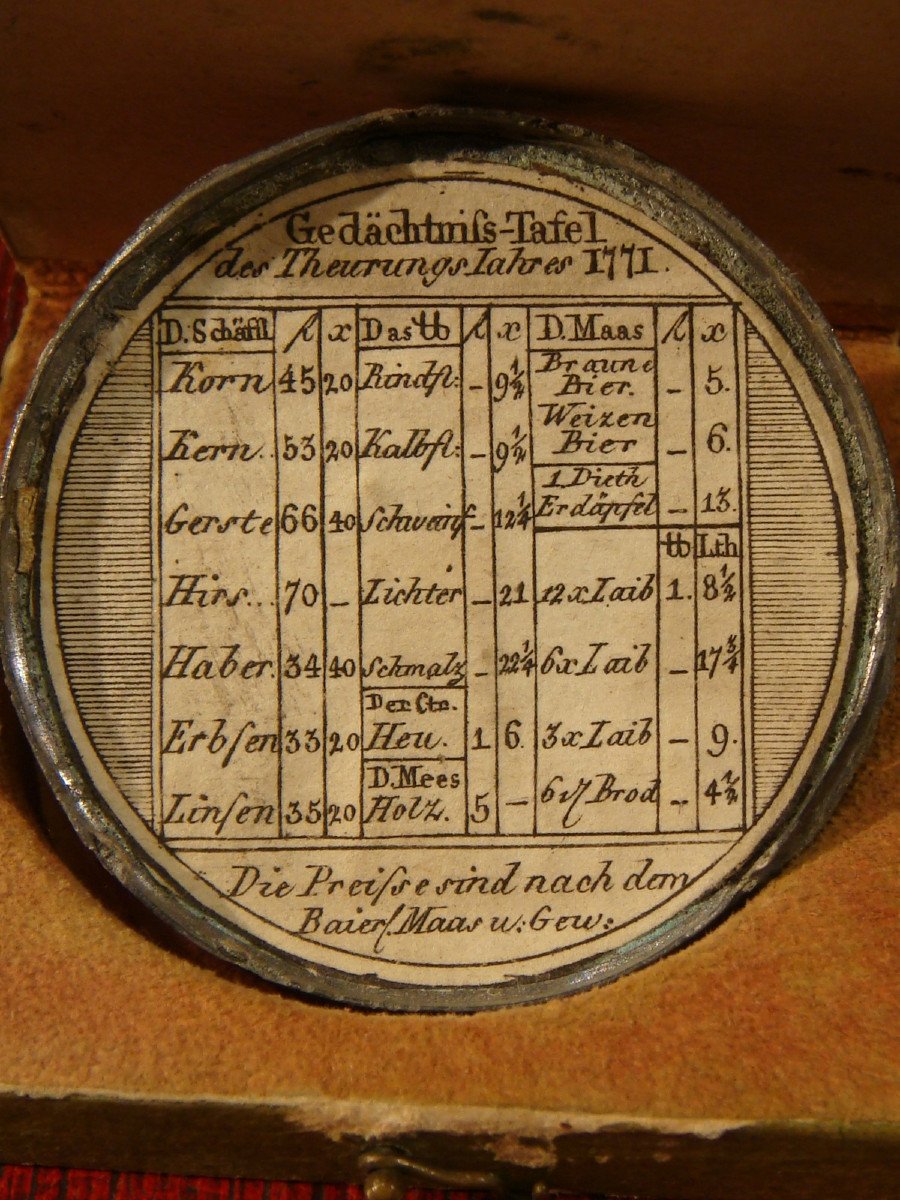 Gedächtniſs-Tafel
des Theurungs Iahres 1771.
D. Schäffl fl x Das ℔ fl x D. Maas fl x
Korn 45 20 Rindfl: – 9½ Braune Bier. – 5.
Kern.. 53 20 Kalbfl: – 9½ Weizen Bier – 6.
Gerste 66 40 Schweinf – 12¼ 1 Dieth Erdäpfel – 13.
℔ Lth
Hirs... 70 – Lichter – 21 12x Laib 1. 8½
Haber. 34 40 Schmalz – 22¼ 6x Laib – 17¾
Der Ctr.
Erbſen 33 20 Heu. 1 6. 3x Laib – 9.
D. Mees
Linſen 35 20 Holz. 5 – 6 ₰ Brod – 4½
Die Preiſse sind nach dem
Baierſ. Maas u: Gew: